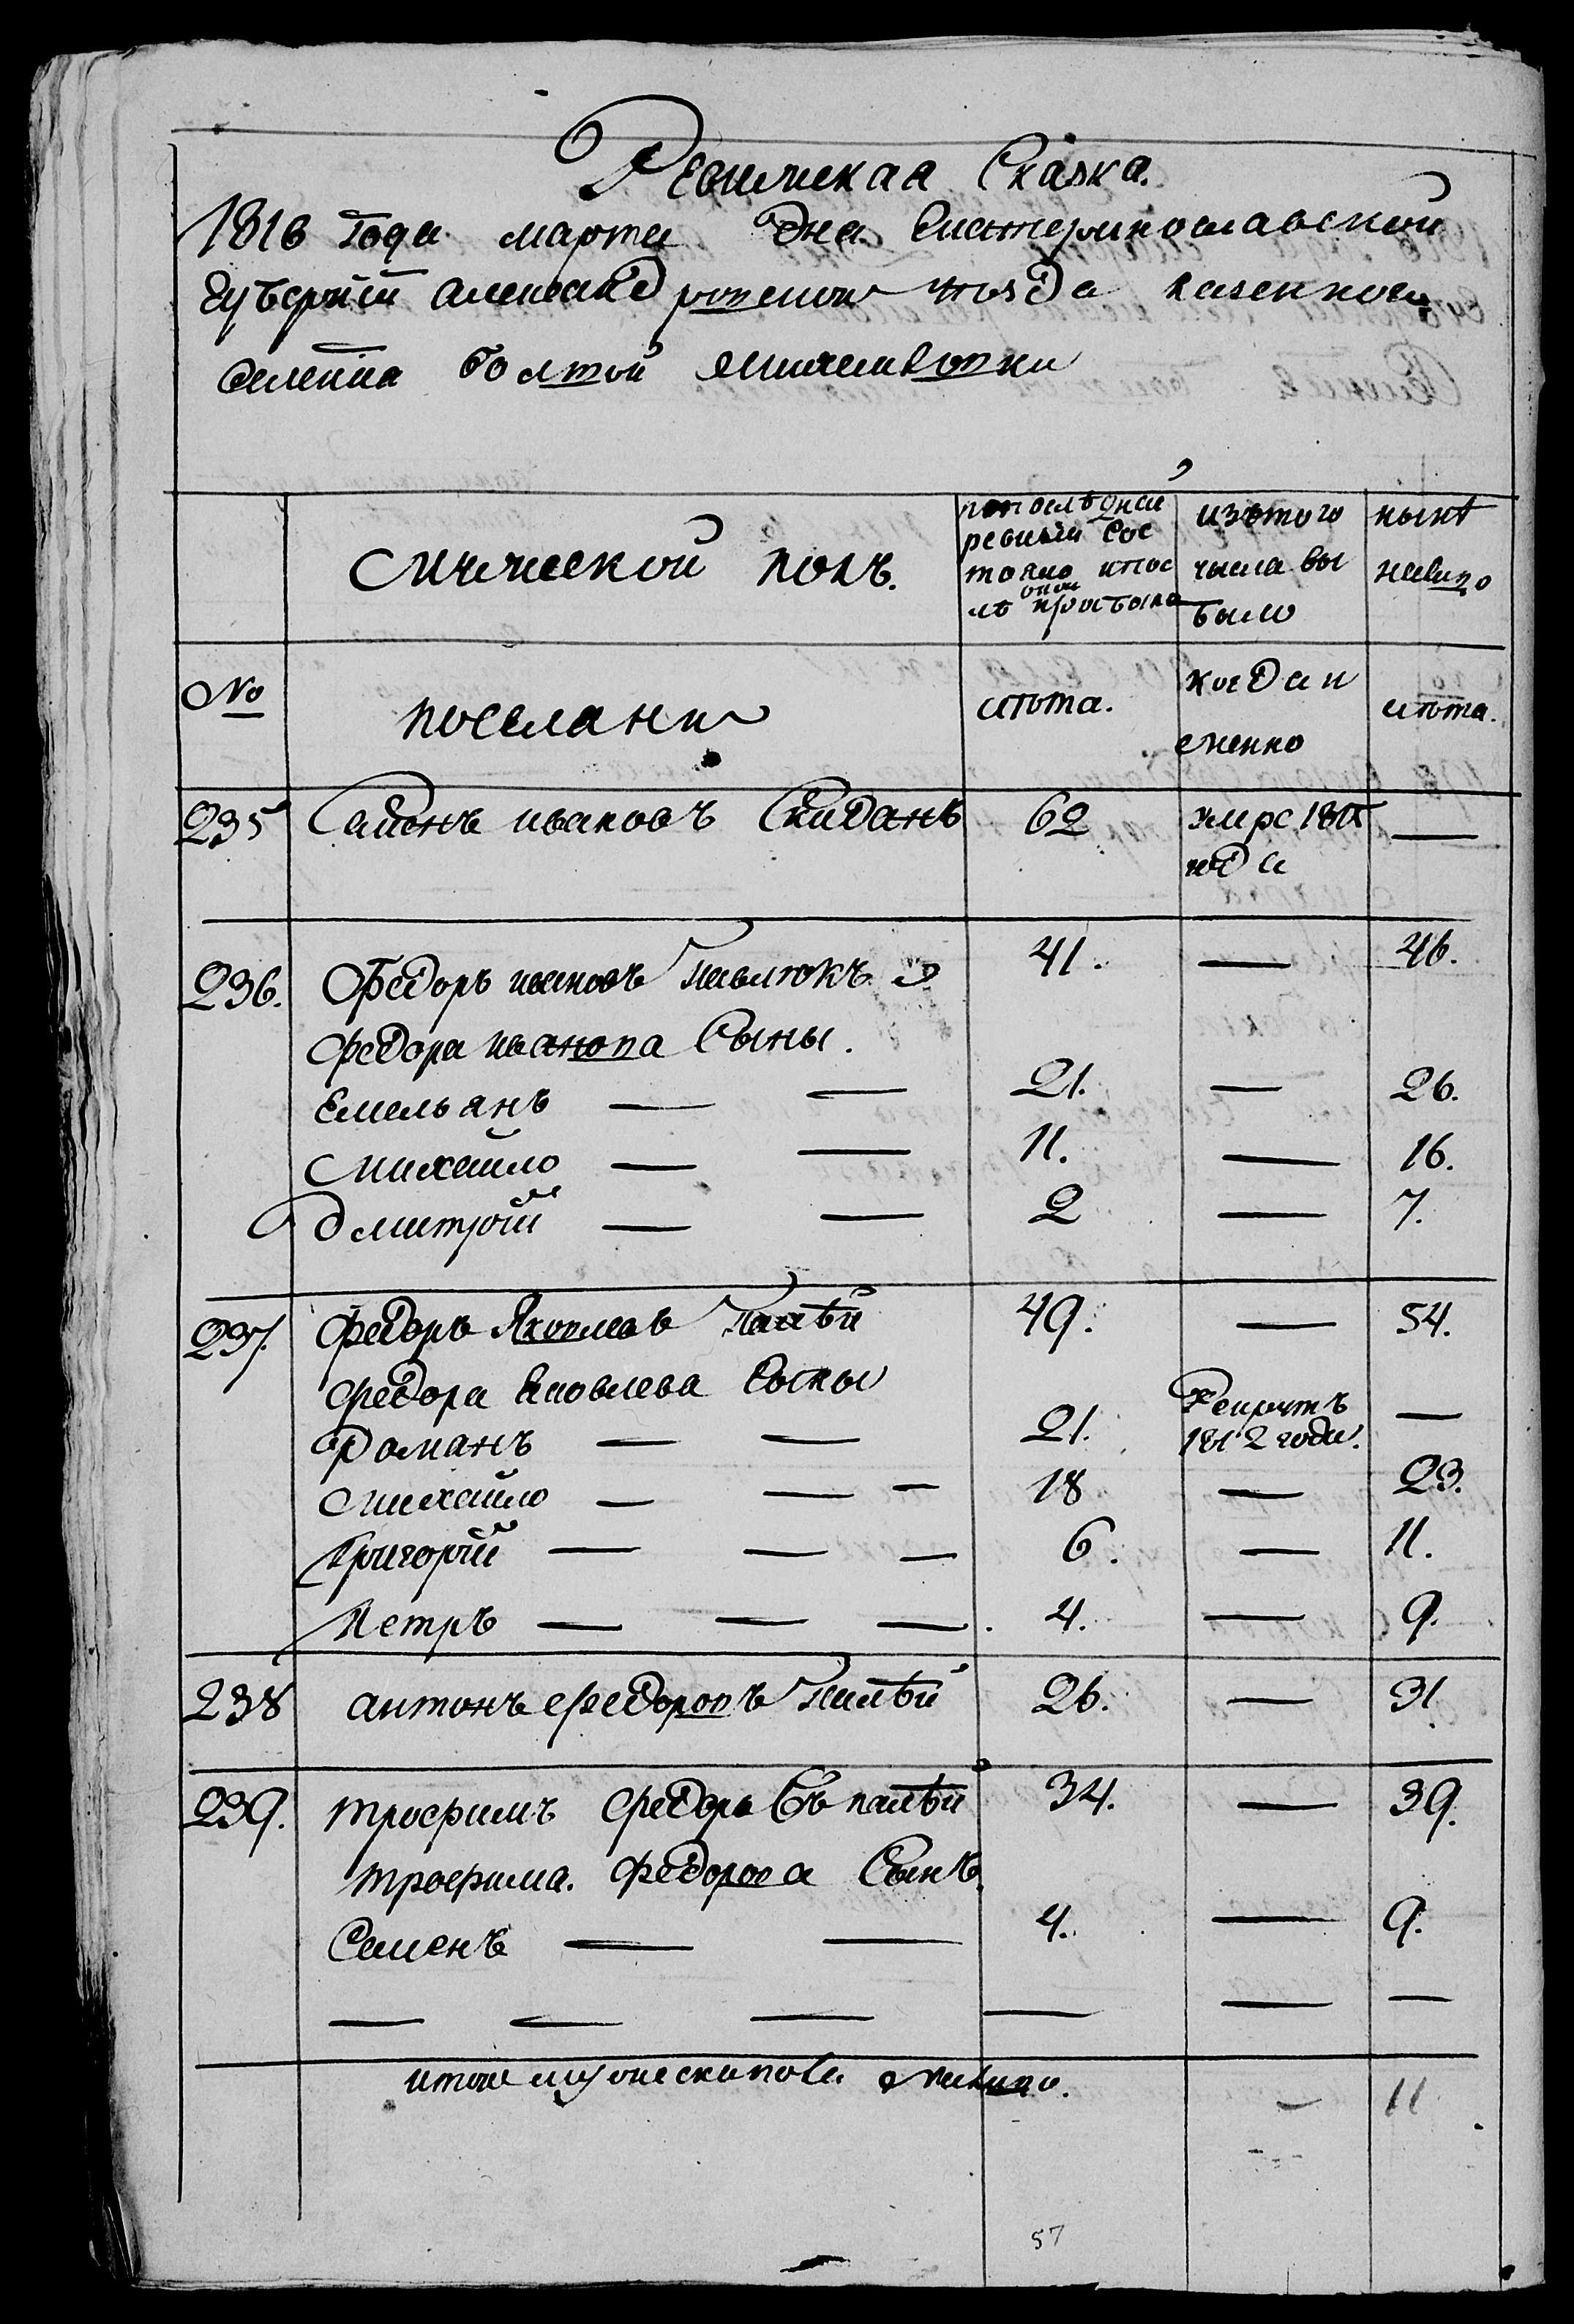 Ревижская Сказка.
1816 Года марта дня Екатеринославской
Губерніи Александровского уѣзда казенного
Селенія Болшой Михайловки
Мужеской полъ.
по последней ревизіи состояло и после оной прибыло
изътого числа выбыло
нынѣ налицо
№
поселяни
лѣта.
когда именно
лѣта.
235 Самонъ ивановъ Скиданъ 62 умре 1811 года —
236. Федоръ ивановъ Павлюкъ 41. — 46.
Федора иванова Сыны.
Емельянъ — — 21. — 26.
Михаило — — 11. — 16.
Дмитрій — — 2 — 7.
237. Федоръ Яковлевъ Палѣй 49. — 54.
Федора Яковлева Сыны
Романъ — — 21. Рекрутъ 1812 года. —
Михаило — — — 18 — 23.
Григорій — — — 6. — 11.
Петръ — — — 4. — 9.
238 антонъ Федоровъ Палѣй 26. — 31
239. трофимъ Федоровъ палѣй 34. — 39.
трофима. Федорова Сынъ.
Семенъ — — 4. — 9.
— — — — — —
итого мужеска пола налицо. — 11
57